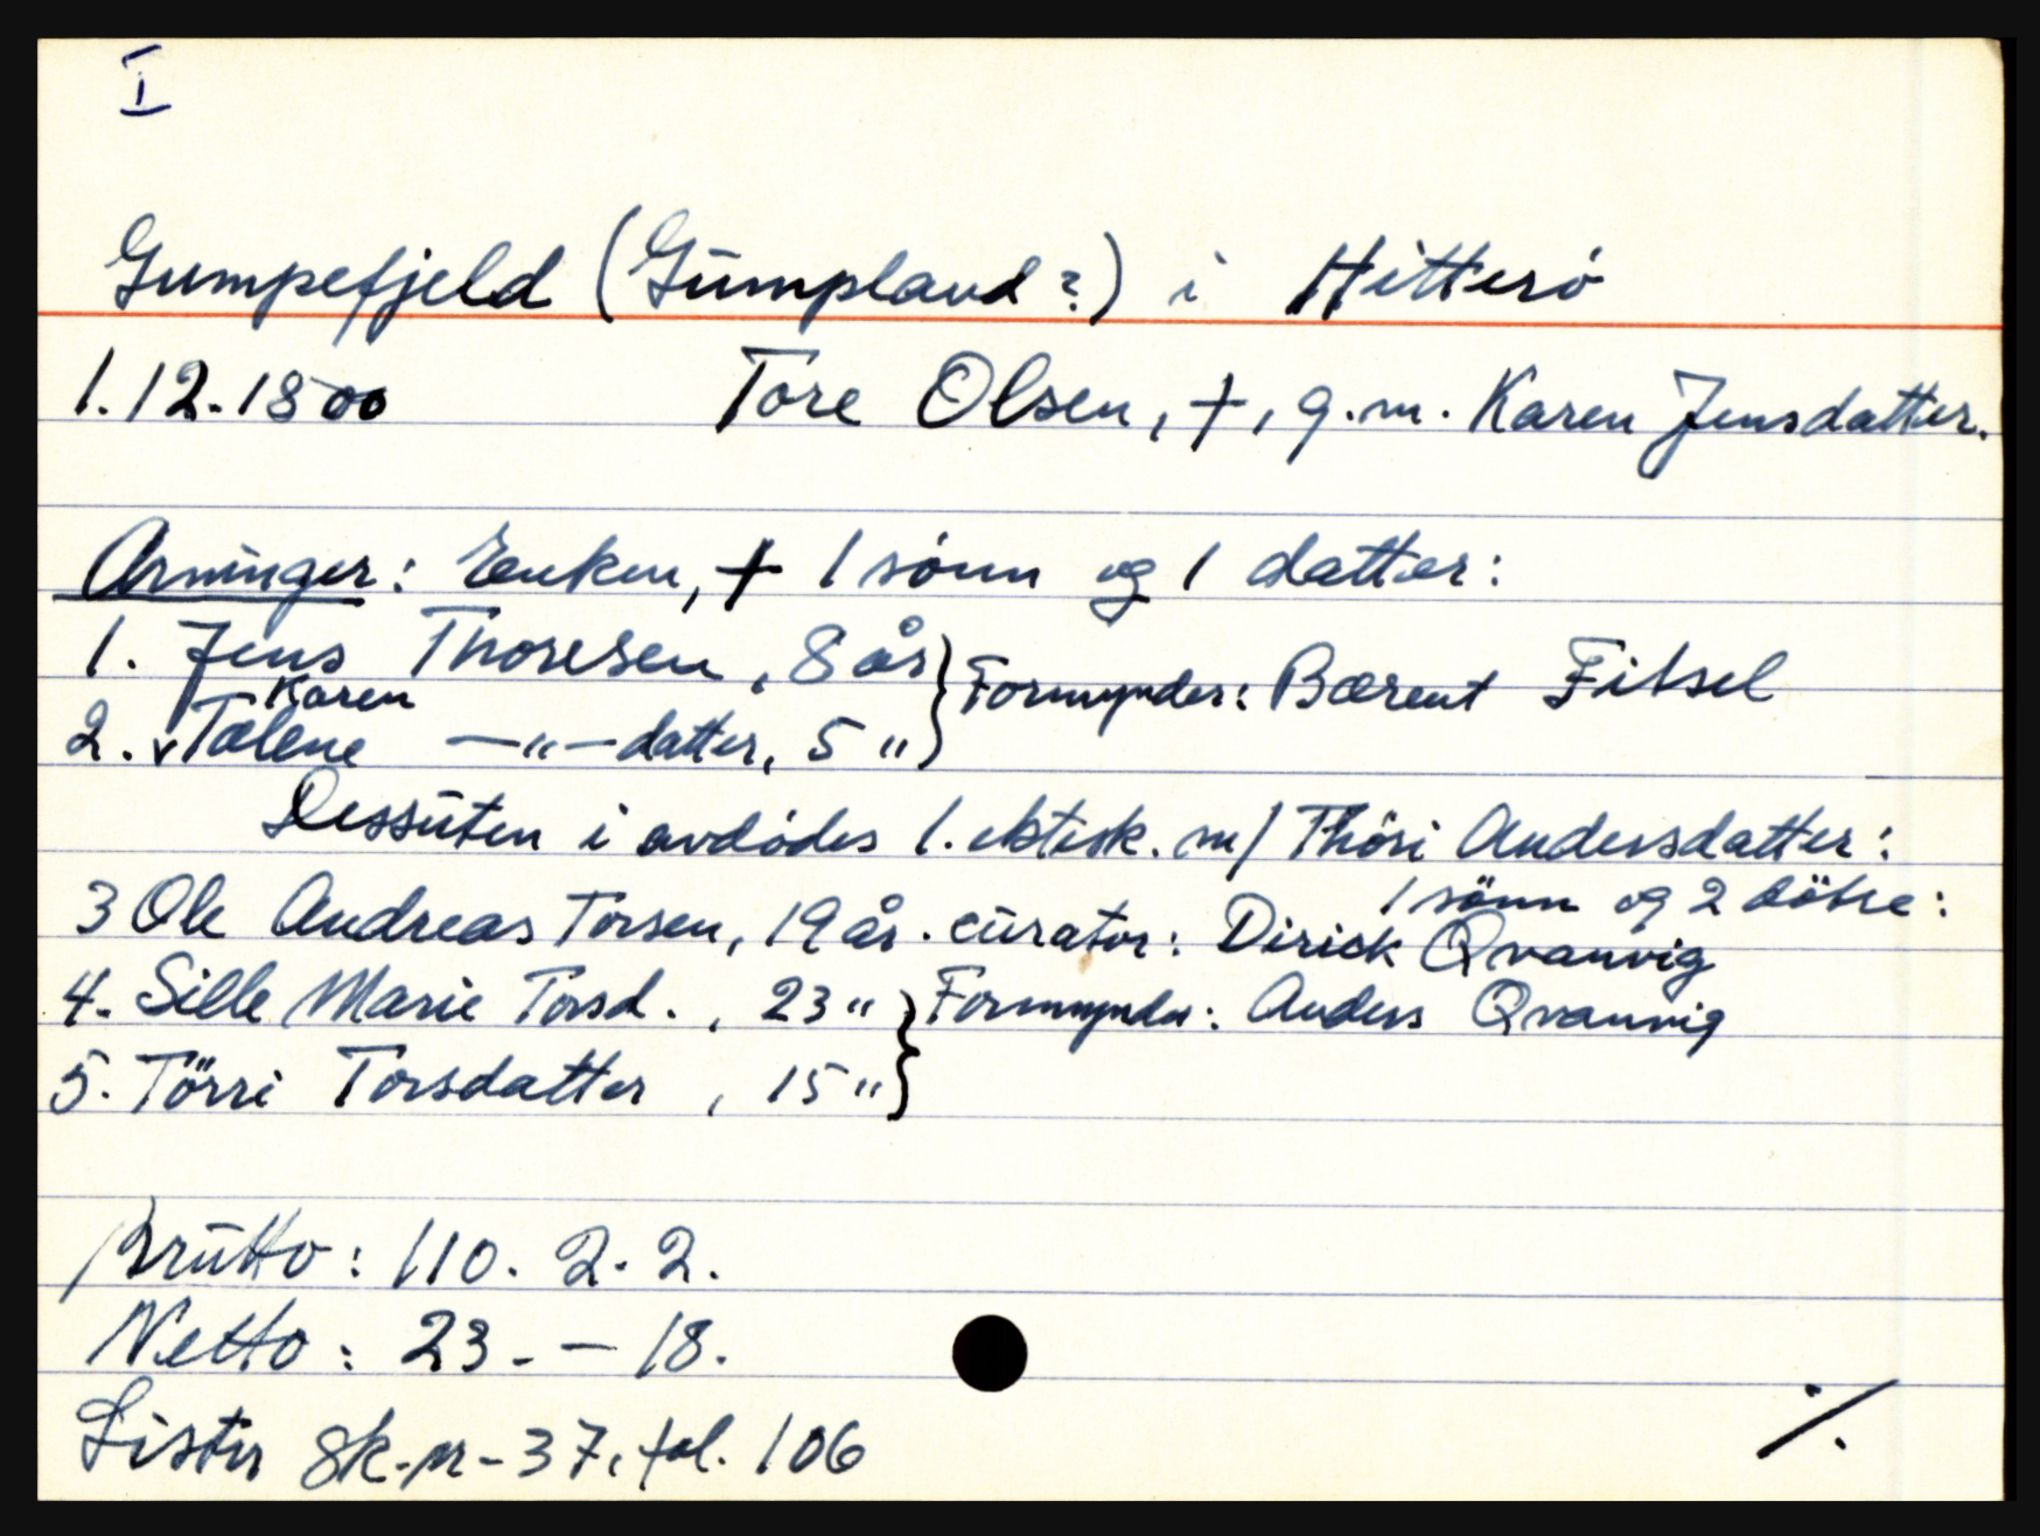 I
Gumpefjeld (Gumpland?) i Hitterö
1.12.1800 Tore Olsen, †, g.m. Karen Jensdatter.
Arvinger: Enken, + 1 sönn og 1 datter:
1. Jens Thoresen, 8 år } Formynder: Bærent Fibsel
Karen
2. v Talene —"— datter, 5 " }
Dessuten i avdödes 1. ektesk. m/ Thöri Andersdatter:
1 sönn og 2 dötre:
3 Ole Andreas Torsen, 19 år. curator: Dirick Qvanvig
4. Sille Marie Torsd. , 23 " } Formynder: Anders Qvanvig
5. Törri Torsdatter , 15 " }
Brutto: 110. 2. 2.
Netto: 23. — 18.
Lister sk.pr. 37, fol. 106
./.